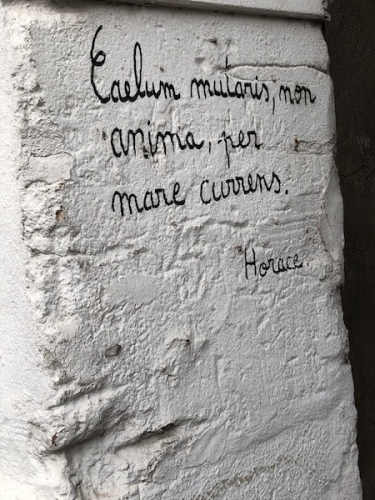 Caelum mutaris, non
anima, per
mare currens.
Horace.